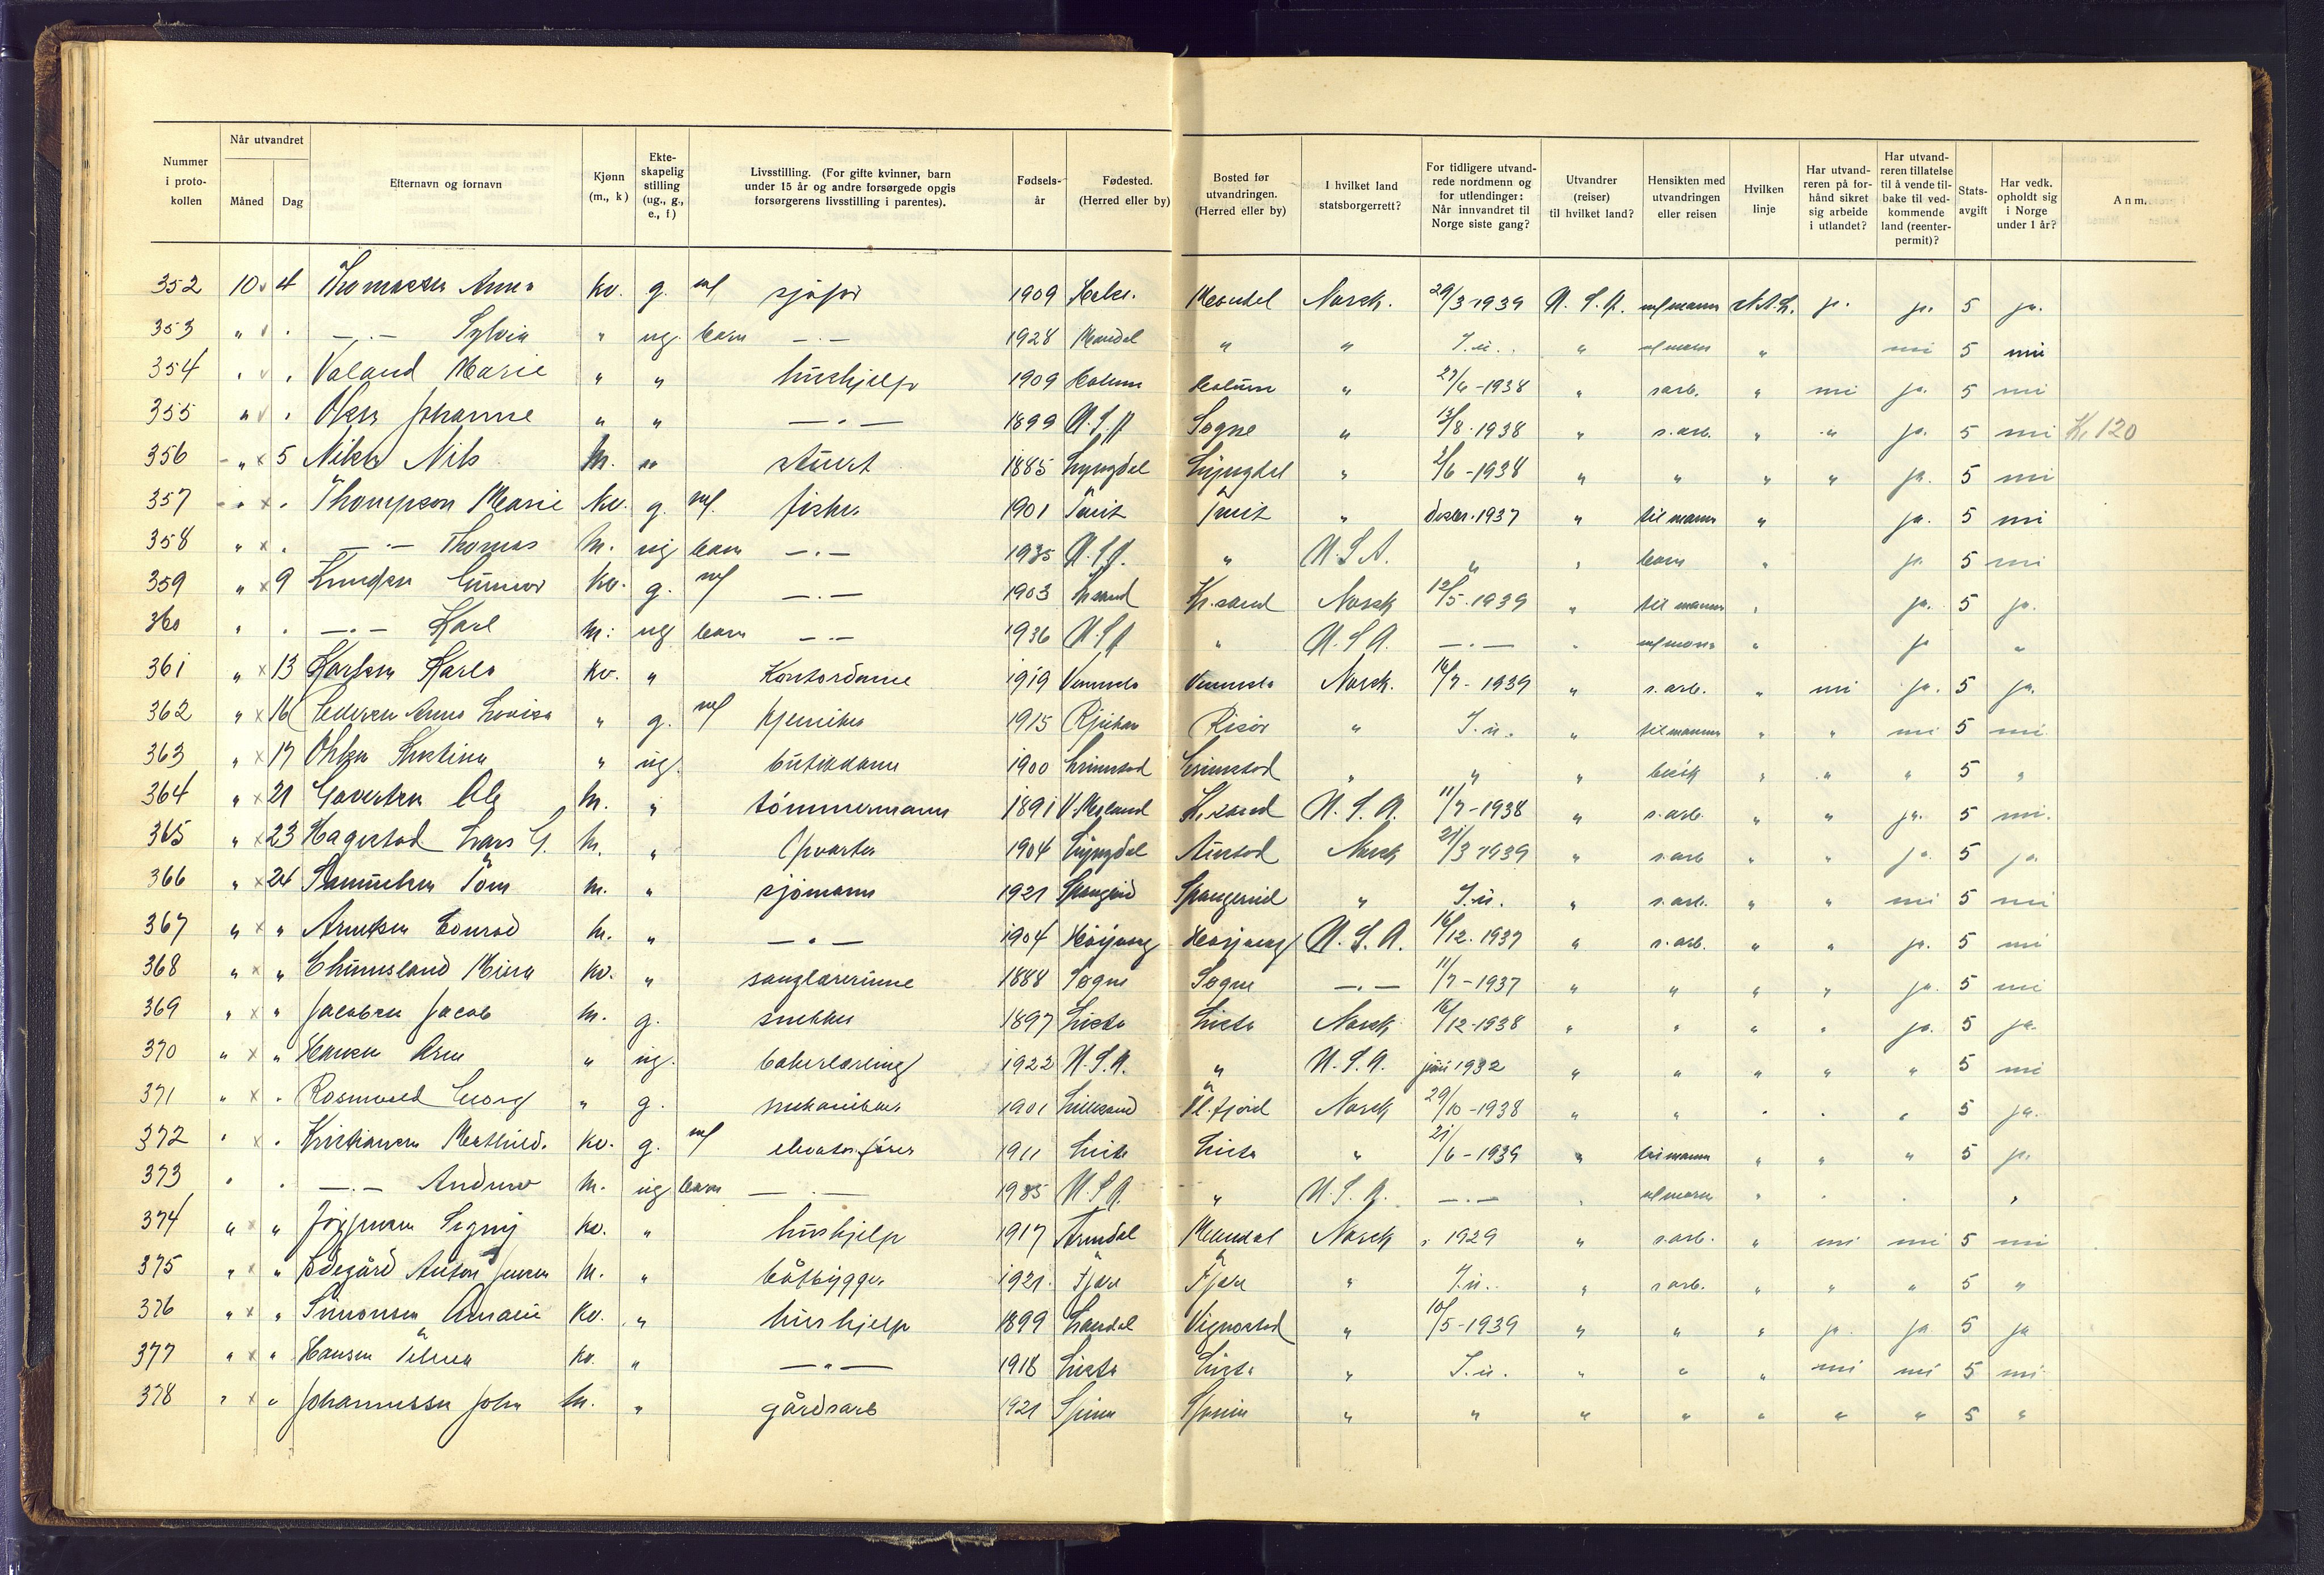 Nummer i proto- kollen | Når utvandret Måned Dag | Efternavn og fornavn | Kjønn (m., k) | Ekte- skapelig stilling (ug., g., e., f) | Livsstilling. (For gifte kvinner, barn under 15 år og andre forsørgede opgis forsørgerens livsstilling i parentes). | Fødsels- år | Fødested. (Herred eller by) | Bosted før utvandringen. (Herred eller by) | I hvilket land statsborgerrett? | For tidligere utvand- rede nordmenn og for utlendinger: Når innvandret til Norge siste gang? | Utvandrer (reiser) til hvilket land? | Hensikten med utvandringen eller reisen | Hvilken linje | Har utvand- reren på for- hånd sikret sig arbeide i utlandet? | Har utvand- reren tillatelse til å vende til- bake til ved- kommende land (reenter- permit)? | Stats- avgift | Har vedk. opholdt sig i Norge under 1 år? | Anm.
352 10 4 Thomassen Anna kv. g. sjåfør 1909 Mandal Norsk. 29/3 1939 U.S.A. ja. ja. 5 ja.
353 " " —.— Sylvia " ug. barn —.— 1928 Mandal " " I.u. " " nei 5 nei
354 " " Valand Marie " " hushjelp 1909 Holum Holum " 27/6-1938 " s.arb. " nei ja. 5 nei
355 " " Olsen Johanne " " —"— 1899 U.S.A Søgne " 13/8.1938 " s.arb. " " ja. 5 nei Kr 120
356 " 5 Nilsen Nils M. " stuert 1885 Lyngdal Lyngdal " 2/6-1938 " " " " ja. 5 nei
357 " " Thompson Marie Kv. g. fisker 1901 Tveit Tveit " desbr. 1937 " til mann " ja. 5 nei
358 " " —.— Thomas M. ug barn —.— 1935 U.S.A. " U.S.A. " " barn " ja 5 nei
359 " 9 Knudsen Gunvor Kv. g. —.— 1903 Kr.sand Kr.sand Norsk 12/5.1939 " til mann " ja. 5 ja.
360 " " —.— Karl M. ug barn —.— 1936 U.S.A " U.S.A. —.— " " ja "
361 " 13 Karlsen Karla kv. " Kontordame 1919 Vennesla Vennesla Norsk. 14/7-1939 " s.arb. " nei ja. 5 ja.
362 " 16 Pedersen Anna Lovisa " g. kjemiker 1915 Rjukan Risør " I.u. " til mann " " nei 5 nei
363 " 17 Ohlsen Kristina " ug. butikkdame 1900 Grimstad Grimstad " " " besøk " " " 5 "
364 " 21 M. " tømmermann 1891 Kr.sand U.S.A. 11/7-1938 " s.arb. " " ja. 5 nei.
365 " 23 Hagestad Lars G. M. " 1904 Lyngdal Austad Norsk 21/3 1939 " s.arb " " ja. 5 ja.
366 " 24 Samuelsen Tom M. " sjømann 1921 Spangereid Spangereid " I.u. " s.arb. " " nei 5 nei
367 " " Arnesen Conrad M. " —"— 1904 Høvåg Høvåg U.S.A. 16/12.1937 " s.arb. " " ja. 5 nei
368 " " Mina Kv. " sanglærerinne 1888 Søgne Søgne —.— 11/7-1937 " " " " ja. 5 nei
369 " " Jacobsen Jacob M. g. snekker 1897 Lista Lista Norsk 16/12-1938 " " " " ja. 5 ja.
370 " " Hansen Arne " ug. bakerlærling 1922 U.S.A. " U.S.A. juni 1932 " " " " " 5 nei
371 " " Rosenvold Georg " g. mekaniker 1901 Lillesand Norsk 29/10-1938 " " " " " 5 ja.
372 " " Kristiansen Mathild. Kv. g. elevatorfører 1911 Lista Lista " 21/6-1939 " til mann " " " 5 ja.
373 " " —.— Andrew M. ug barn —.— 1935 U.S.A " U.S.A. —.— " " " " "
374 " " Signy Kv. " hushjelp 1917 Arendal Mandal Norsk 1929 " s.arb. " nei nei 5 nei
375 " " Ødegård Anton Jensen M. " båtbygger 1921. Fjære Fjære " I.u. " s.arb. " " " 5 "
376 " " Simonsen Amalie Kv. " hushjelp 1899 Laudal Vigmostad " 10/5-1939 " " " ja. ja 5 ja
377 " " Hansen Telma Kv. " —"— 1918 Lista Lista " I.u. " " " nei nei 5 nei
378 " " Johannessen John M. " gårdsarb 1921 Spind Spind " " " " " " " 5 "